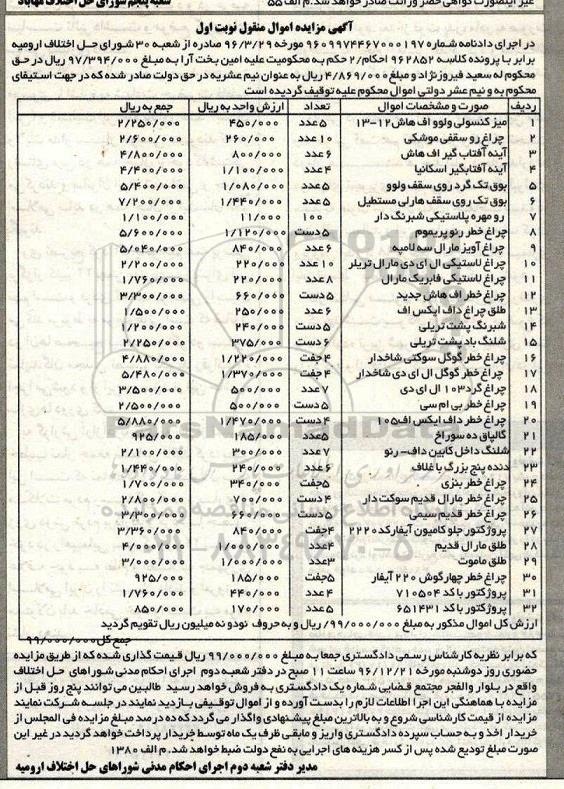 غیر اینصورت گواهی حصر وراثت صادر خواهد شد.م الف ۵۵
شعبه پنجم شورای حل اختلاف مهاباد
آگهی مزایده اموال منقول نوبت اول
در اجرای دادنامه شماره ۹۶۰۹۹۷۴۴۶۷۰۰۰۱۹۷ مورخه ۹۶/۳/۲۹ صادره از شعبه ۳۰ شورای حل اختلاف ارومیه
برابر با پرونده کلاسه ۹۶۲۸۵۲ احکام/۲ حکم به محکومیت علیه امین بخت آرا به مبلغ ۹۷/۳۹۴/۰۰۰ ریال در حق
محکوم له سعید فیروزنژاد و مبلغ ۴/۸۶۹/۰۰۰ ریال به عنوان نیم عشریه در حق دولت صادر شده که در جهت استیفای
محکوم به و نیم عشر دولتی اموال محکوم علیه توقیف گردیده است
ردیف صورت و مشخصات اموال تعداد ارزش واحد به ریال جمع به ریال
۱ میز کنسولی ولوو اف هاش ۱۲-۱۳ ۵عدد ۴۵۰/۰۰۰ ۲/۲۵۰/۰۰۰
۲ چراغ رو سقفی موشکی ۱۰عدد ۲۶۰/۰۰۰ ۲/۶۰۰/۰۰۰
۳ آینه آفتاب گیر اف هاش ۶عدد ۸۰۰/۰۰۰ ۴/۸۰۰/۰۰۰
۴ آینه آفتابگیر اسکانیا ۴عدد ۱/۱۰۰/۰۰۰ ۴/۴۰۰/۰۰۰
۵ بوق تک گرد روی سقف ولوو ۵عدد ۱/۰۸۰/۰۰۰ ۵/۴۰۰/۰۰۰
۶ بوق تک روی سقف هارلی مستطیل ۵عدد ۱/۴۴۰/۰۰۰ ۷/۲۰۰/۰۰۰
۷ رو مهره پلاستیکی شبرنگ دار ۱۰۰ ۱۱/۰۰۰ ۱/۱۰۰/۰۰۰
۸ چراغ خطر رنو پریموم ۵دست ۱/۱۲۰/۰۰۰ ۵/۶۰۰/۰۰۰
۹ چراغ آویز مارال سه لامپه ۶عدد ۸۴۰/۰۰۰ ۵/۰۴۰/۰۰۰
۱۰ چراغ لاستیکی ال ای دی مارال تریلر ۱۰عدد ۲۲۰/۰۰۰ ۲/۲۰۰/۰۰۰
۱۱ چراغ لاستیکی فابریک مارال ۸عدد ۲۲۰/۰۰۰ ۱/۷۶۰/۰۰۰
۱۲ چراغ خطر اف هاش جدید ۵دست ۶۶۰/۰۰۰ ۳/۳۰۰/۰۰۰
۱۳ طلق چراغ داف ایکس اف ۶عدد ۲۵۰/۰۰۰ ۱/۵۰۰/۰۰۰
۱۴ شبرنگ پشت تریلی ۵دست ۲۴۰/۰۰۰ ۱/۲۰۰/۰۰۰
۱۵ شلنگ باد پشت تریلی ۶دست ۳۷۵/۰۰۰ ۲/۲۵۰/۰۰۰
۱۶ چراغ خطر گوگل سوکتی شاخدار ۴جفت ۱/۲۲۰/۰۰۰ ۴/۸۸۰/۰۰۰
۱۷ چراغ خطر گوگل ال ای دی شاخدار ۴جفت ۱/۳۷۰/۰۰۰ ۵/۴۸۰/۰۰۰
۱۸ چراغ گرد ۱۰۳ ال ای دی ۷عدد ۵۰۰/۰۰۰ ۳/۵۰۰/۰۰۰
۱۹ چراغ خطر بی ام سی ۵دست ۵۰۰/۰۰۰ ۲/۵۰۰/۰۰۰
۲۰ چراغ خطر داف ایکس اف۱۰۵ ۴دست ۱/۴۷۰/۰۰۰ ۵/۸۸۰/۰۰۰
۲۱ گالپاق ده سوراخ ۵عدد ۱۸۵/۰۰۰ ۹۲۵/۰۰۰
۲۲ شلنگ داخل کابین داف- رنو ۷عدد ۳۰۰/۰۰۰ ۲/۱۰۰/۰۰۰
۲۳ دنده پنج بزرگ با غلاف ۶عدد ۲۴۰/۰۰۰ ۱/۴۴۰/۰۰۰
۲۴ چراغ خطر بنزی ۵جفت ۳۴۰/۰۰۰ ۱/۷۰۰/۰۰۰
۲۵ چراغ خطر مارال قدیم سوکت دار ۴دست ۷۰۰/۰۰۰ ۲/۸۰۰/۰۰۰
۲۶ چراغ خطر قدیم سیمی ۵دست ۶۶۰/۰۰۰ ۳/۳۰۰/۰۰۰
۲۷ پروژکتور جلو کامیون آیفارکد ۲۲۰ ۴جفت ۸۴۰/۰۰۰ ۳/۳۶۰/۰۰۰
۲۸ طلق مارال قدیم ۴عدد ۱/۰۰۰/۰۰۰ ۴/۰۰۰/۰۰۰
۲۹ طلق ماموت ۳عدد ۱/۰۰۰/۰۰۰ ۳/۰۰۰/۰۰۰
۳۰ چراغ خطر چهارگوش ۲۲۰ آیفار ۵جفت ۱۸۵/۰۰۰ ۹۲۵/۰۰۰
۳۱ پروژکتور با کد ۷۱۰۵۰۴ ۴عدد ۴۴۰/۰۰۰ ۱/۷۶۰/۰۰۰
۳۲ پروژکتور با کد ۶۵۱۴۳۱ ۵عدد ۱۷۰/۰۰۰ ۸۵۰/۰۰۰
ارزش کل اموال مذکور به مبلغ ۹۹/۰۰۰/۰۰۰ ریال و به حروف نود و نه میلیون ریال تقویم گردید
جمع کل ۹۹/۰۰۰/۰۰۰
که برابر نظریه کارشناس رسمی دادگستری جمعا به مبلغ ۹۹/۰۰۰/۰۰۰ ریال قیمت گذاری شده که از طریق مزایده
حضوری روز دوشنبه مورخه ۹۶/۱۲/۲۱ ساعت ۱۱ صبح در دفتر شعبه دوم اجرای احکام مدنی شوراهای حل اختلاف
واقع در بلوار والفجر مجتمع قضایی شماره یک دادگستری به فروش خواهد رسید طالبین می توانند پنج روز قبل از
مزایده با هماهنگی این اجرا اطلاعات لازم را بدست آورده و از اموال توقیفی بازدید نمایند در جلسه شرکت نمایند
مزایده از قیمت کارشناسی شروع و به بالاترین مبلغ پیشنهادی واگذار می گردد که ده درصد مبلغ مزایده فی المجلس از
خریدار اخذ و به حساب سپرده دادگستری واریز و مابقی ظرف یک ماه توسط خریدار پرداخت خواهد گردید در غیر این
صورت مبلغ تودیع شده پس از کسر هزینه های اجرایی به نفع دولت ضبط خواهد شد. م الف ۱۳۸۰
مدیر دفتر شعبه دوم اجرای احکام مدنی شوراهای حل اختلاف ارومیه